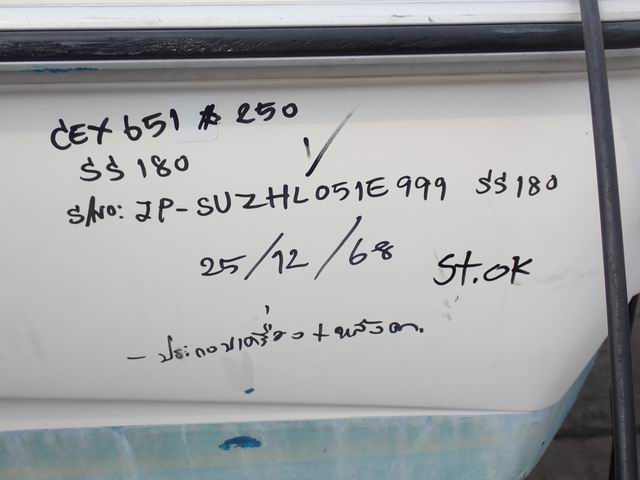 CEX 651 # 250
SS 180
S/NO: JP-SUZHL051E999 SS180
25/12/68
St.OK
- ประกอบเครื่อง + หลังคา.